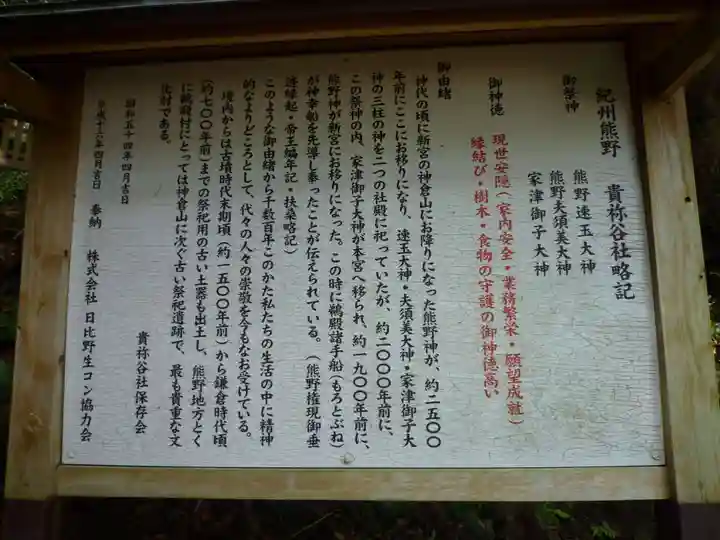 紀州熊野　貴祢谷社略記
御祭神　熊野速玉大神
熊野夫須美大神
家津御子大神
御神徳　現世安隠(家内安全・業務繁栄・願望成就)
縁結び・樹木・食物の守護の御神徳高い
御由緒
神代の頃に新宮の神倉山にお降りになった熊野神が、約二五〇〇
年前にここにお移りになり、速玉大神・夫須美大神・家津御子大
神の三柱の神を二つの社殿に祀っていたが、約二〇〇〇年前に、
この祭神の内、家津御子大神が本宮へ移られ、約一九〇〇年前に、
熊野神が新宮にお移りになった。この時に鵜殿諸手船(もろとぶね)
が神幸船を先導し奉ったことが伝えられている。(熊野権現御垂
迹縁起・帝王編年記・扶桑略記)
このような御由緒から千数百年このかた私たちの生活の中に精神
的なよりどころとして、代々の人々の崇敬を今もなお受けている。
境内からは古墳時代末期頃(約一五〇〇年前)から鎌倉時代頃
(約七〇〇年前)までの祭祀用の古い土器も出土し、熊野地方とく
に鵜殿村にとっては神倉山に次ぐ古い祭祀遺跡で、最も貴重な文
化財である。
貴祢谷社保存会
昭和五十四年四月吉日
平成十六年四月吉日　奉納　株式会社　日比野生コン協力会